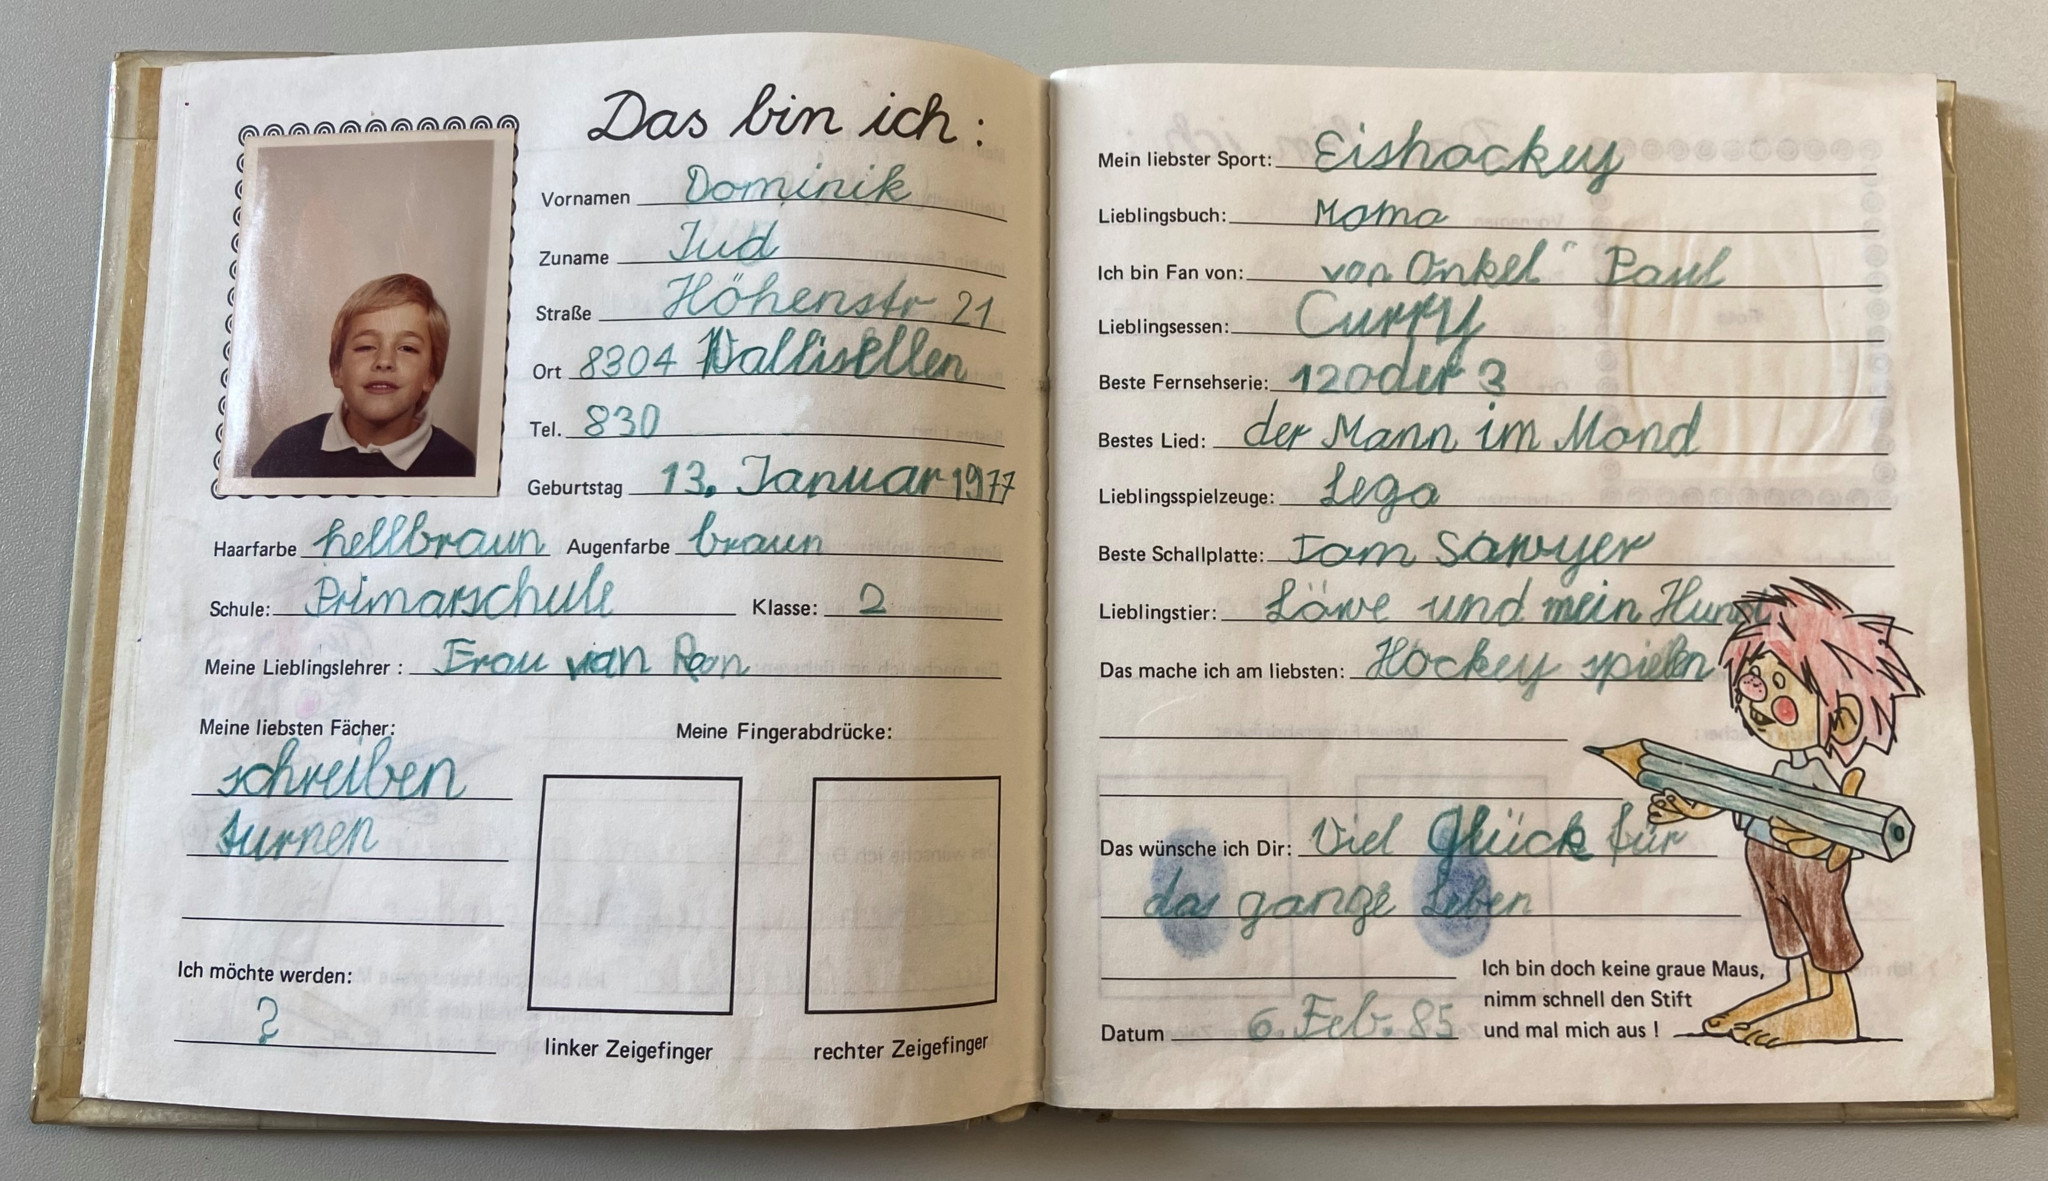 Das bin ich:
Vornamen Dominik
Zuname Jud
Straße Höhenstr 21
Ort 8304 Wallisellen
Tel. 830
Geburtstag 13. Januar 1977
Haarfarbe hellbraun Augenfarbe braun
Schule: Primarschule Klasse: 2
Meine Lieblingslehrer : Frau van
Meine liebsten Fächer:
schreiben
turnen
Meine Fingerabdrücke:
Ich möchte werden:
?
linker Zeigefinger
rechter Zeigefinger
Mein liebster Sport: Eishockey
Lieblingsbuch: Momo
Ich bin Fan von: von Onkel" Paul
Lieblingsessen: Curry
Beste Fernsehserie: 1 2 oder 3
Bestes Lied: der Mann im Mond
Lieblingsspielzeuge: Lego
Beste Schallplatte: Tom Sawyer
Lieblingstier: Löwe und mein Hund
Das mache ich am liebsten: Hockey spielen
Das wünsche ich Dir: Viel Glück für
das ganze Leben
Datum 6. Feb. 85
Ich bin doch keine graue Maus,
nimm schnell den Stift
und mal mich aus !